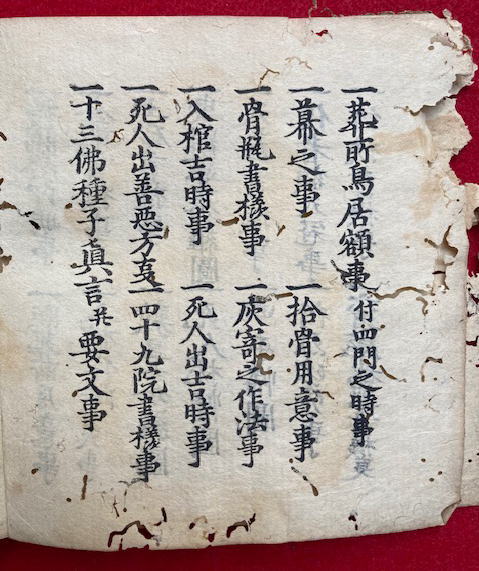 一葬所鳥居額事付四門之時事
一幕之事 一拾骨用意事
一骨瓶書様事 一灰寄之作法事
一入棺吉時事 一死人出吉時事
一死人出善悪方事 一四十九院書様事
一十三佛種子真言并要文事